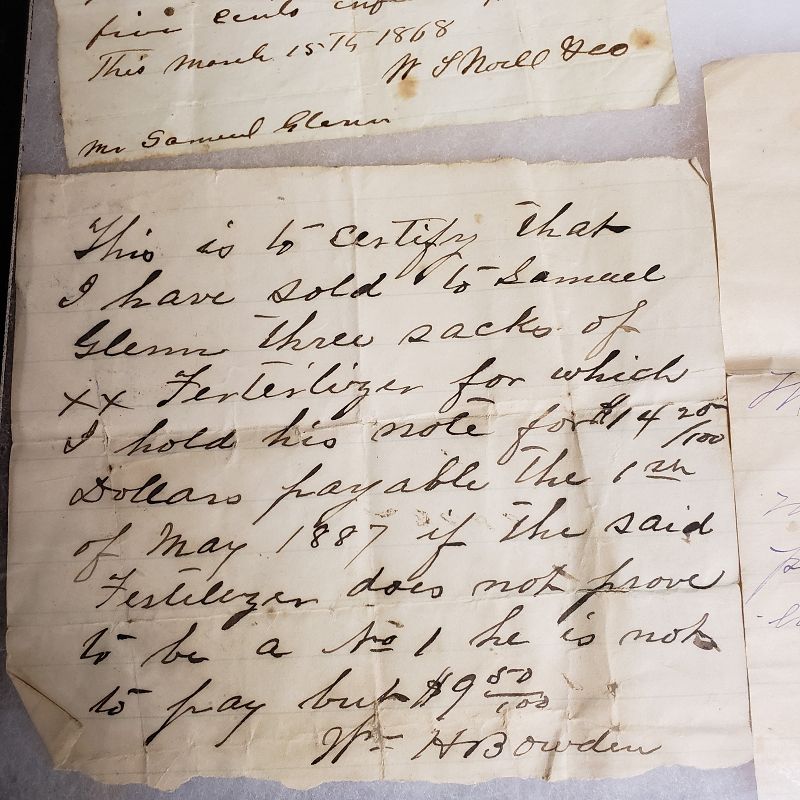 five cents
This March 15Th 1868
W S Noell & Co
Mr Samuel Glenn
This is to certify that
I have sold to Samuel
Glenn three sacks of
xx Ferterlizer for which
I hold his note for $14 25/100
Dollars payable the 1st
of May 1887 if the said
Fertilizer does not prove
to be a No 1 he is not
to pay but $9 50/100
Wm H Bowden